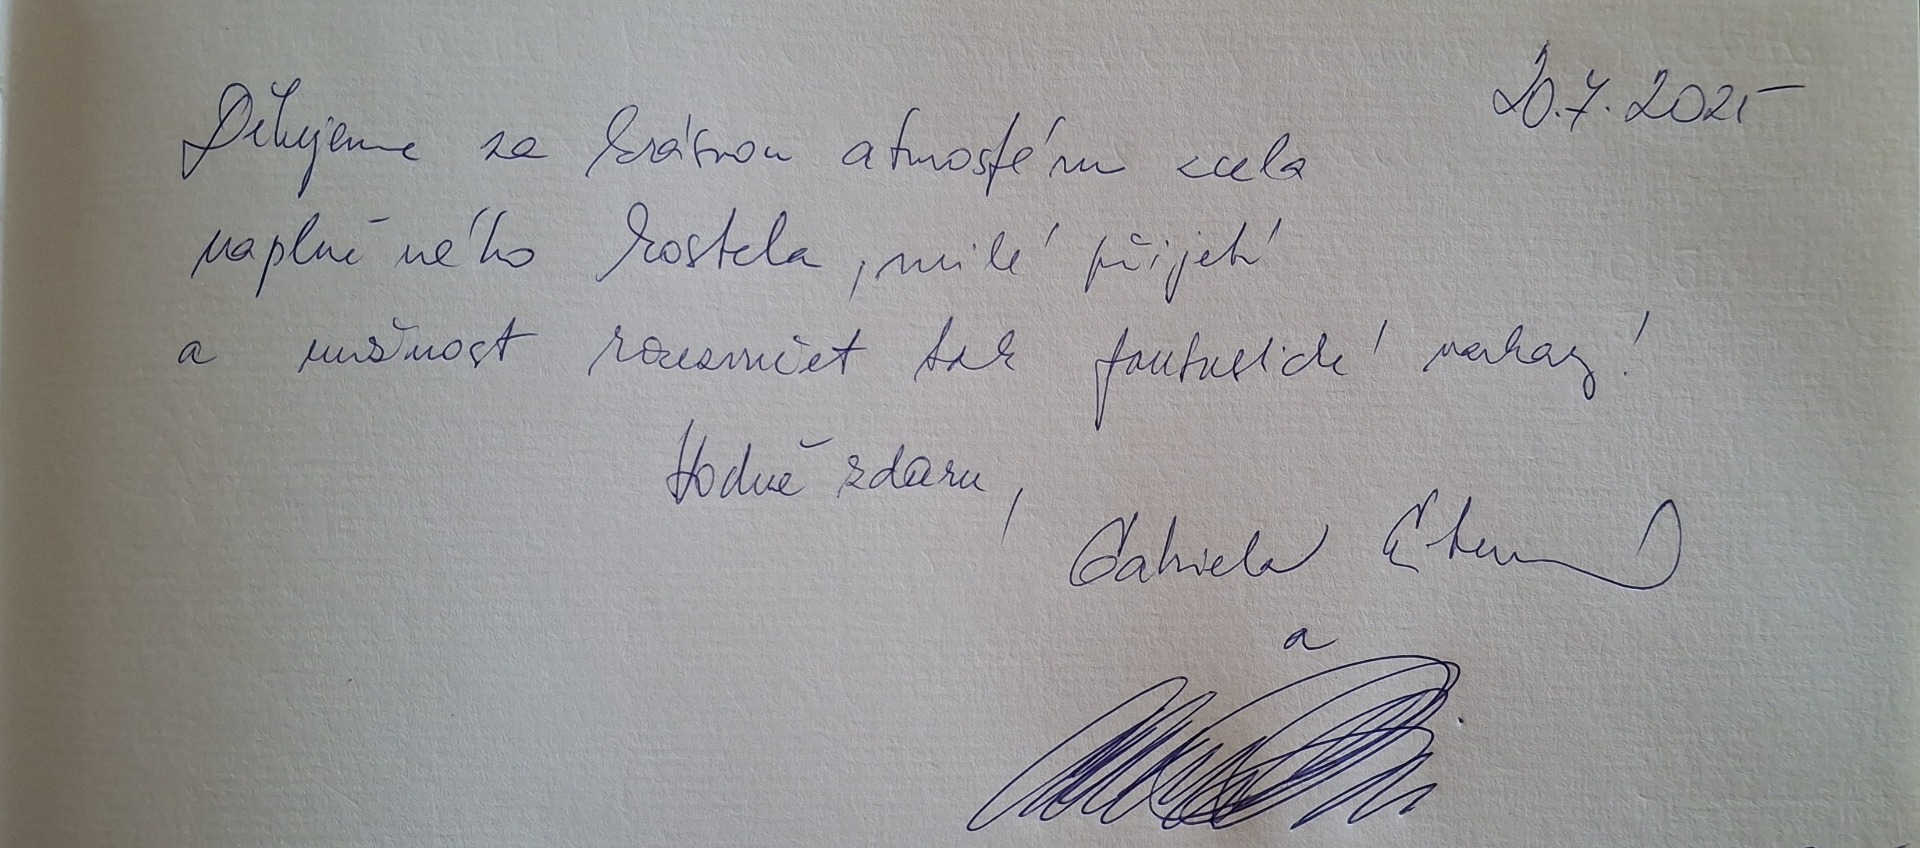 20.7.2025
Děkujeme za krásnou atmosféru zcela
naplněného kostela, milé přijetí
a možnost rozeznít tak fantastické varhany!
Hodně zdaru,
Gabriela
a